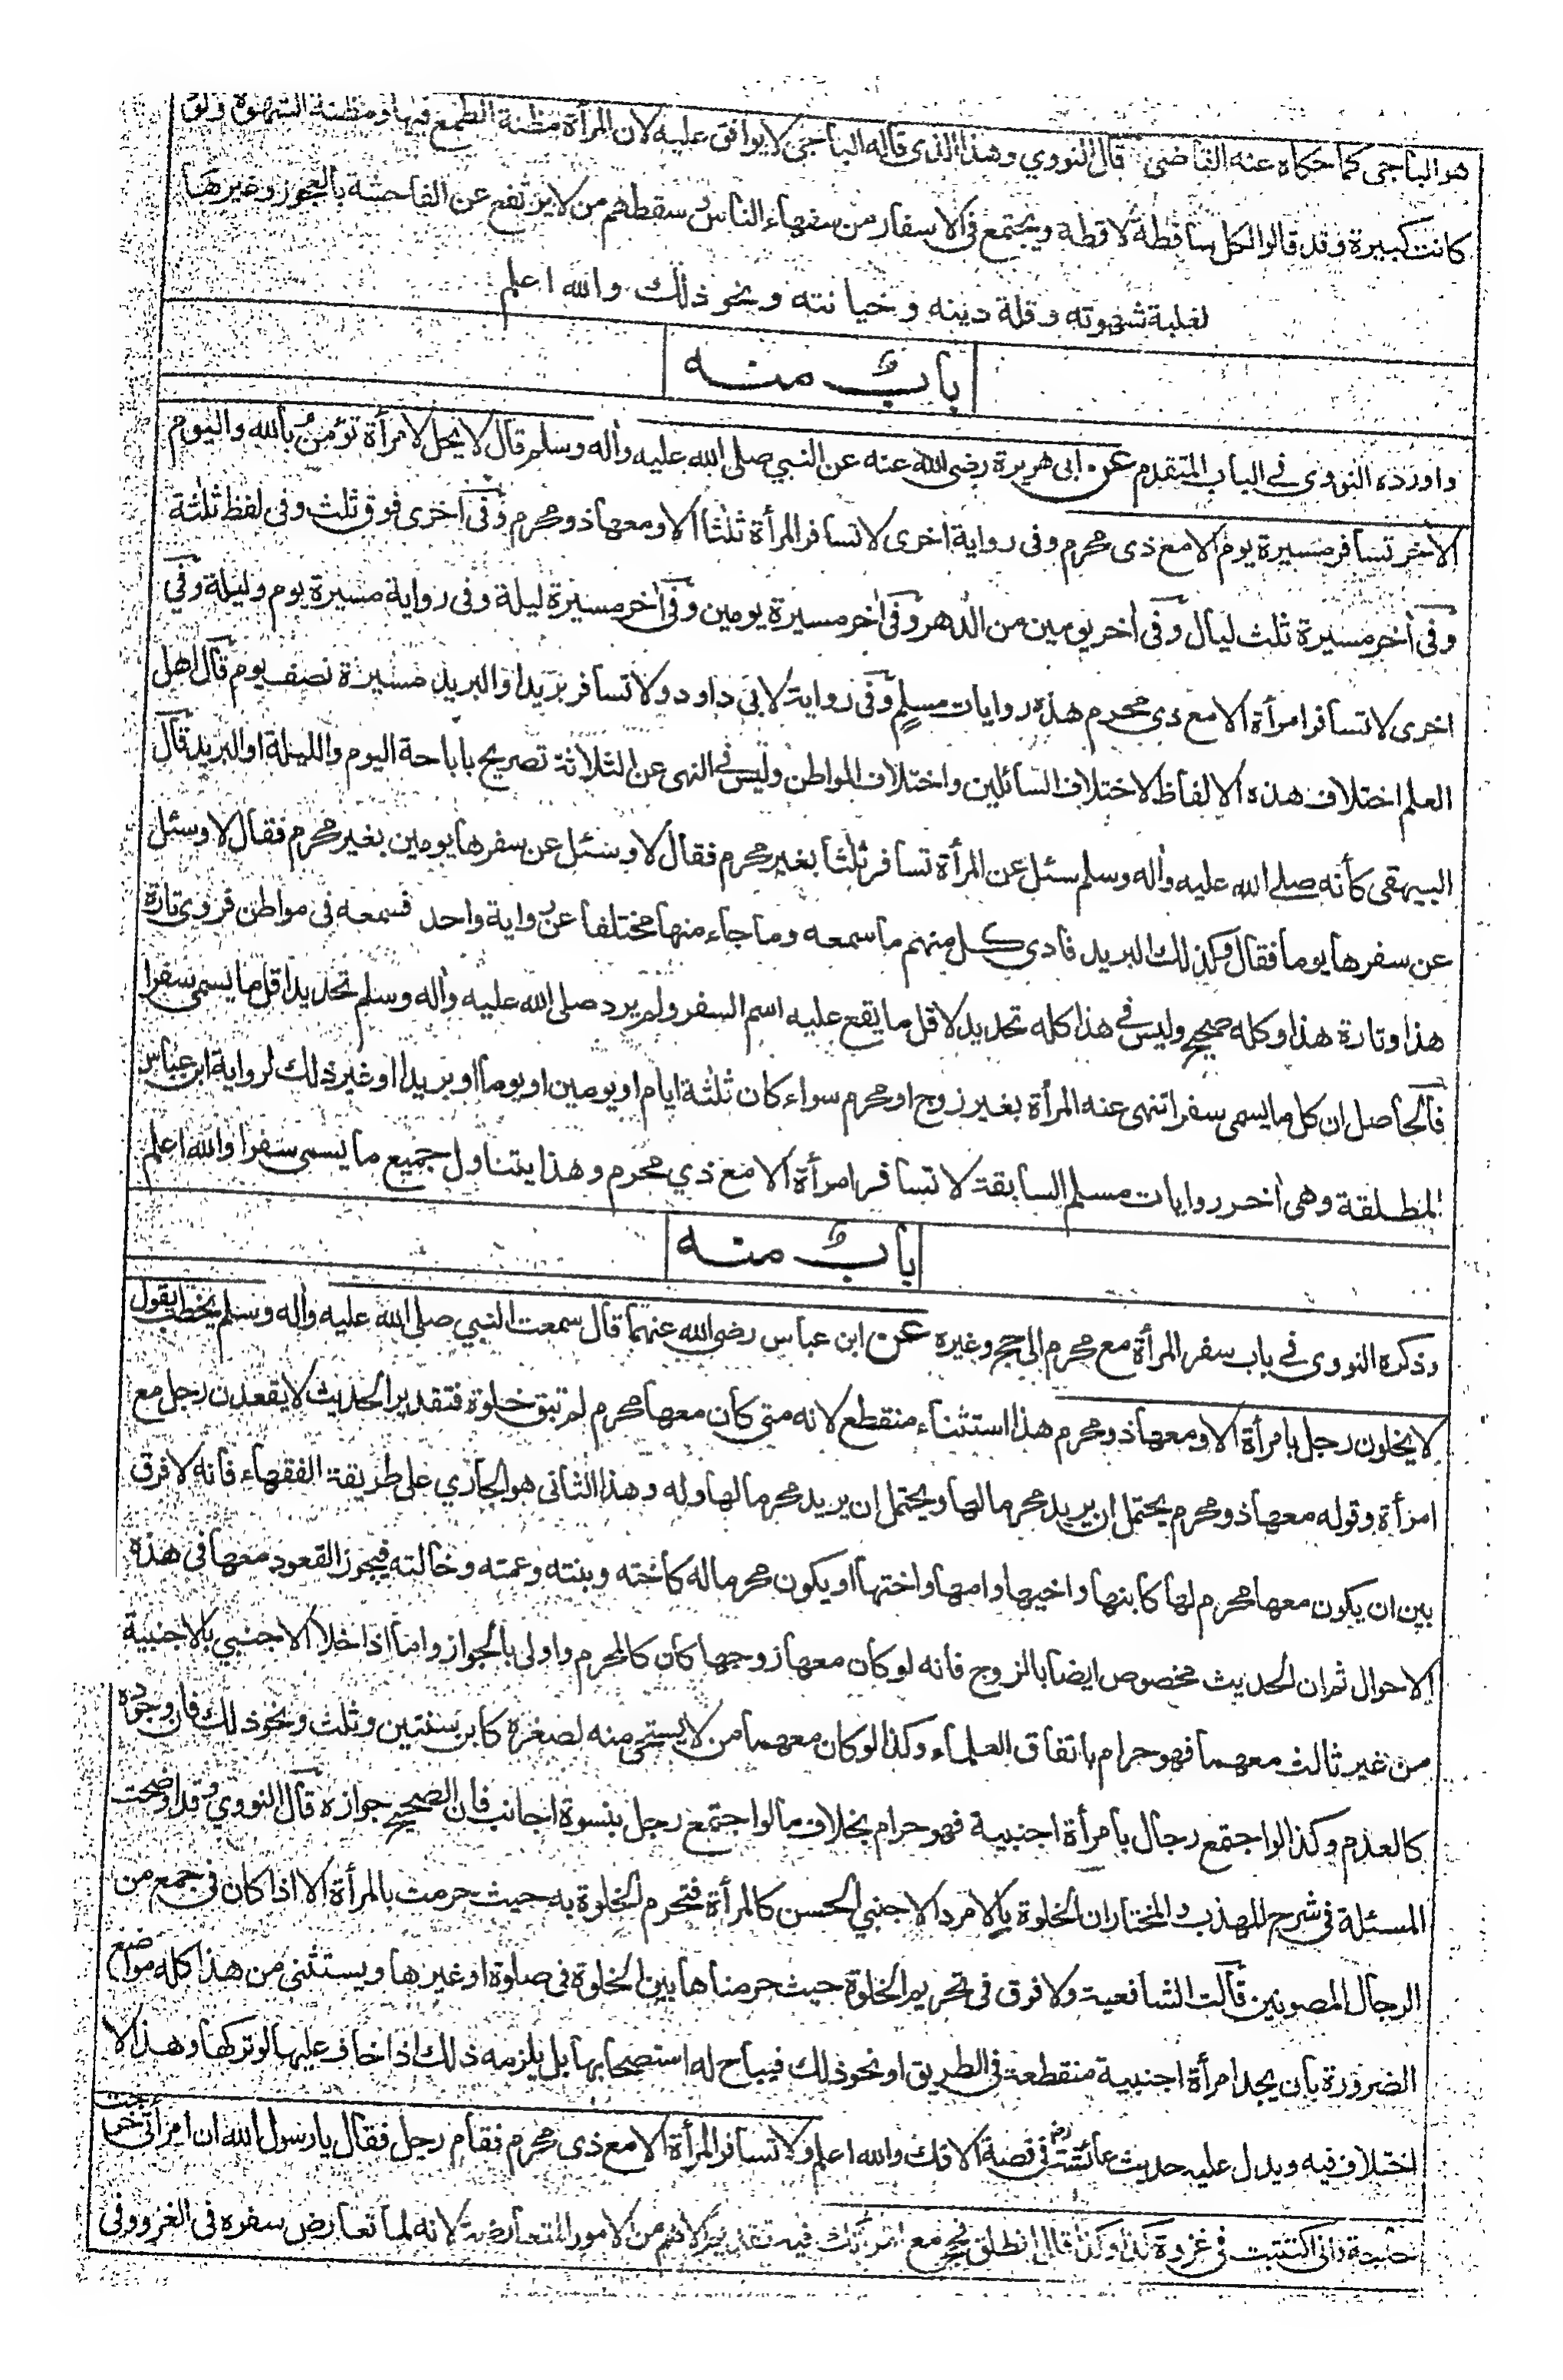 هو الباجى كما حكاه عنه القاضى قال النووي وهذا الذى قاله الباجى لا يوافق عليه لان المرأة مظنة الطمع فيها ومظنة الشهوة ولو
كانت كبيرة وقد قالوا لكل ساقطة لاقطة ويجتمع فى الاسفار من سفهاء الناس وسقطهم من لا يرتفع عن الفاحشة بالعجوز وغيرها
لغلبة شهوته وقلة دينه وخيانته ونحو ذلك والله اعلم
باب منه
واورده النووى فى الباب المتقدم عن ابى هريرة رضى الله عنه عن النبي صلى الله عليه واله وسلم قال لا يحل لامرأة تؤمن بالله واليوم
الاخر تسافر مسيرة يوم الا مع ذى محرم وفى رواية اخرى لا تسافر المرأة ثلثا الا ومعها ذو محرم وفى اخرى فوق ثلث وفى لفظ ثلثة
وفى اخر مسيرة ثلث ليال وفى اخر يومين من الدهر وفى اخر مسيرة يومين وفى اخر مسيرة ليلة وفى رواية مسيرة يوم وليلة وفي
اخرى لا تسافر امرأة الا مع ذي محرم هذه روايات مسلم وفى رواية لابى داود ولا تسافر بريدا والبريد مسيرة نصف يوم قال اهل
العلم اختلاف هذه الالفاظ لاختلاف السائلين واختلاف المواطن وليس فى النهى عن الثلاثة تصريح باباحة اليوم والليلة او البريد قال
البيهقى كأنه صلى الله عليه واله وسلم سئل عن المرأة تسافر ثلثا بغير محرم فقال لا وسئل عن سفرها يومين بغير محرم فقال لا وسئل
عن سفرها يوما فقال وكذلك البريد فادى كل منهم ما سمعه وما جاء منها مختلفا عن رواية واحد فسمعه فى مواطن فروى تارة
هذا وتارة هذا وكله صحيح وليس فى هذا كله تحديد لاقل ما يقع عليه اسم السفر ولم يرد صلى الله عليه واله وسلم تحديد اقل ما يسمى سفرا
فالحاصل ان كل ما يسمى سفرا تنهى عنه المرأة بغير زوج او محرم سواء كان ثلثة ايام او يومين او يوما او بريدا او غير ذلك لرواية ابن عباس
المطلقة وهى اخر روايات مسلم السابقة لا تسافر امرأة الا مع ذي محرم وهذا يتناول جميع ما يسمى سفرا والله اعلم
باب منه
وذكره النووى فى باب سفر المرأة مع محرم الى حج وغيره عن ابن عباس رضى الله عنهما قال سمعت النبي صلى الله عليه واله وسلم يخطب يقول
لا يخلون رجل بامرأة الا ومعها ذو محرم هذا استثناء منقطع لانه متى كان معها محرم لم تبق خلوة فتقدير الحديث لا يقعدن رجل مع
امرأة وقوله معها ذو محرم يحتمل ان يريد محرما لها ويحتمل ان يريد محرما لها وله وهذا الثانى هو الجاري على طريقة الفقهاء فانه لا فرق
بين ان يكون معها محرم لها كابنها واخيها وامها واختها او يكون محرما له كاخته وبنته وعمته وخالته فيجوز القعود معها فى هذه
الاحوال ثم ان الحديث مخصوص ايضا بالزوج فانه لو كان معها زوجها كان كالمحرم واولى بالجواز واما اذا خلا الاجنبي بالاجنبية
من غير ثالث معهما فهو حرام باتفاق العلماء وكذا لو كان معهما من لا يستحى منه لصغره كابن سنتين وثلث ونحو ذلك فان وجوده
كالعدم وكذا لو اجتمع رجال بامرأة اجنبية فهو حرام بخلاف ما لو اجتمع رجل بنسوة اجانب فان الصحيح جوازه قال النووي وقد اوضحت
المسئلة فى شرح المهذب والمختار ان الخلوة بالامرد الاجنبي الحسن كالمرأة فتحرم الخلوة به حيث حرمت بالمرأة الا اذا كان فى جمع من
الرجال المصونين قالت الشافعية ولا فرق فى تحريم الخلوة حيث حرمناها بين الخلوة فى صلوة او غيرها ويستثنى من هذا كله مواضع
الضرورة بان يجد امرأة اجنبية منقطعة فى الطريق او نحو ذلك فيباح له استصحابها بل يلزمه ذلك اذا خاف عليها لو تركها وهذا لا
اختلاف فيه ويدل عليه حديث عائشة رض فى قصة الافك والله اعلم ولا تسافر المرأة الا مع ذى محرم فقام رجل فقال يا رسول الله ان امرأتى خرجت
حاجة وانى اكتتبت فى غزوة كذا وكذا قال انطلق فحج مع امرأتك فيه تقديم الاهم من الامور المتعارضة لانه لما تعارض سفره فى الغزو وفى